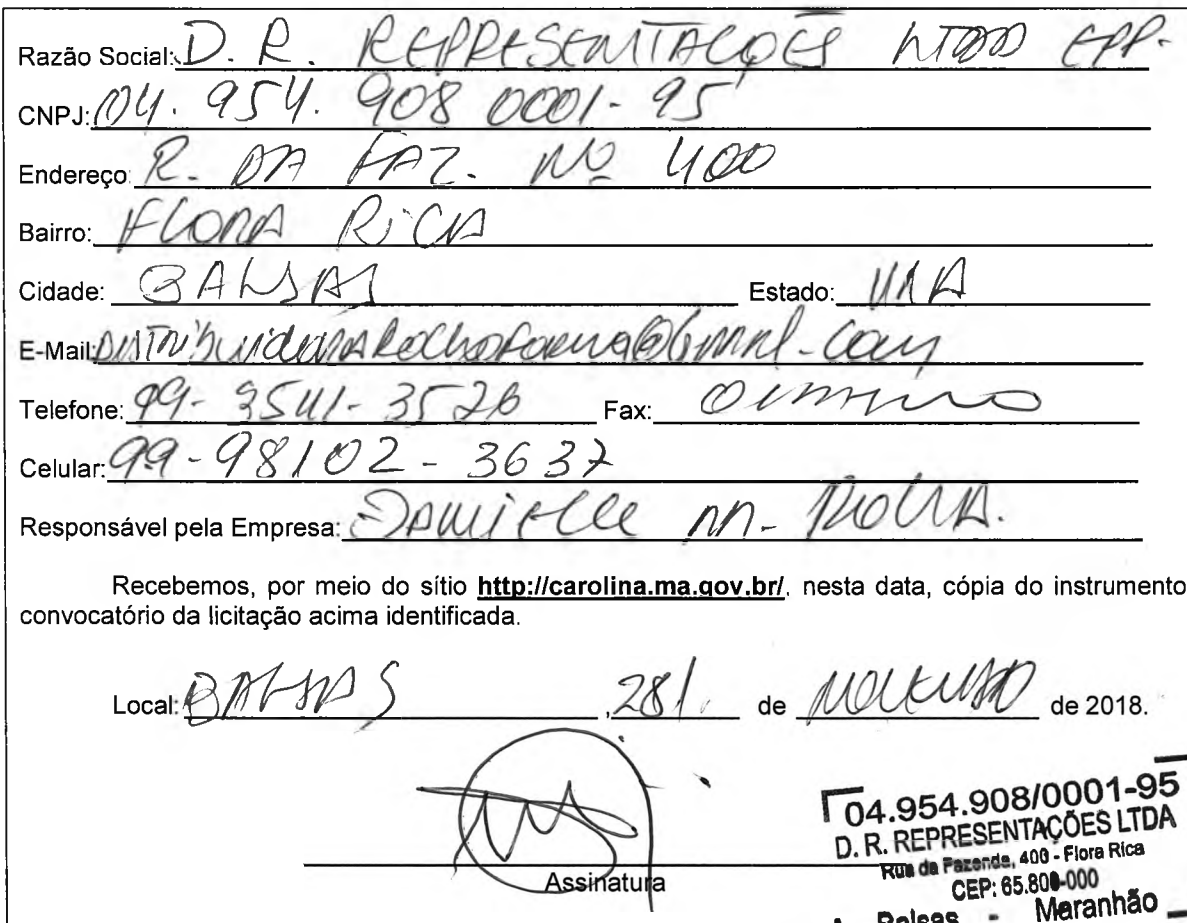 Razão Social: D. R. REPRESENTAÇÕES LTDA EPP-
CNPJ: 04. 954. 908 0001-95
Endereço: R. DA FAZ. Nº 400
Bairro: FLORA RICA
Cidade: BALSAS Estado: MA
E-Mail: @Gmail.com
Telefone: 99- 3541-3526 Fax:
Celular: 99-98102-3637
Responsável pela Empresa: Danielle M. ROCHA.
Recebemos, por meio do sítio http://carolina.ma.gov.br/, nesta data, cópia do instrumento
convocatório da licitação acima identificada.
Local: BALSAS ,28/. de NOVEMBRO de 2018.
Assinatura
04.954.908/0001-95
D. R. REPRESENTAÇÕES LTDA
Rua da Fazenda, 400 - Flora Rica
CEP: 65.800-000
Balsas - Maranhão